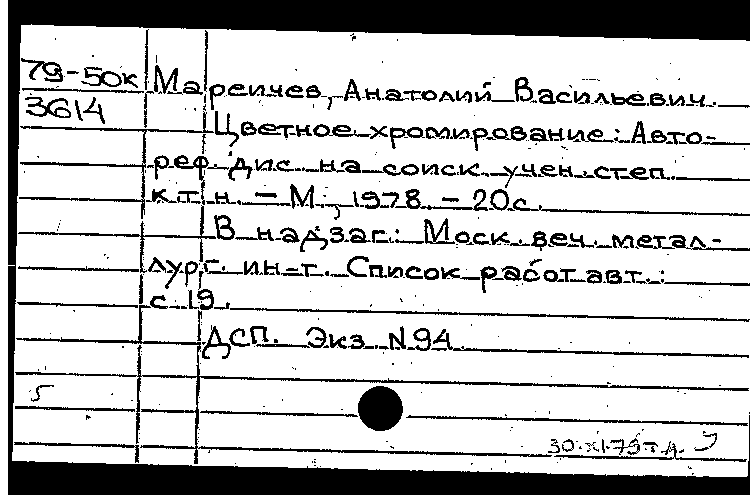 79-50к Мареичев, Анатолий Васильевич.
3614
Цветное хромирование: Авто-
реф. дис. на соиск. учен. степ.
к.т.н. - М., 1978. - 20с.
В надзаг.: Моск. веч. метал-
лург. ин-т. Список работ авт.:
с 19.
ДСП. Экз N94.
5
30.XI.79